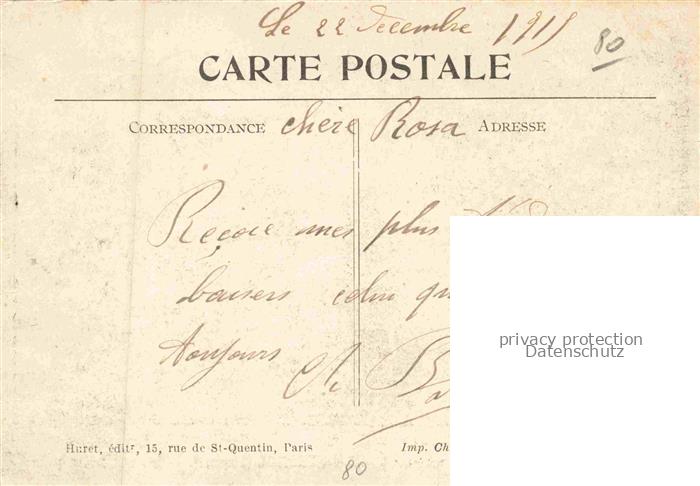 Le 22 decembre 1915
80
CARTE POSTALE
CORRESPONDANCE chère Rosa ADRESSE
Reçoie mes plus
baisers celui qu
toujours
privacy protection
Datenschutz
Huret, éditr, 15, rue de St-Quentin, Paris
Imp. Ch
80